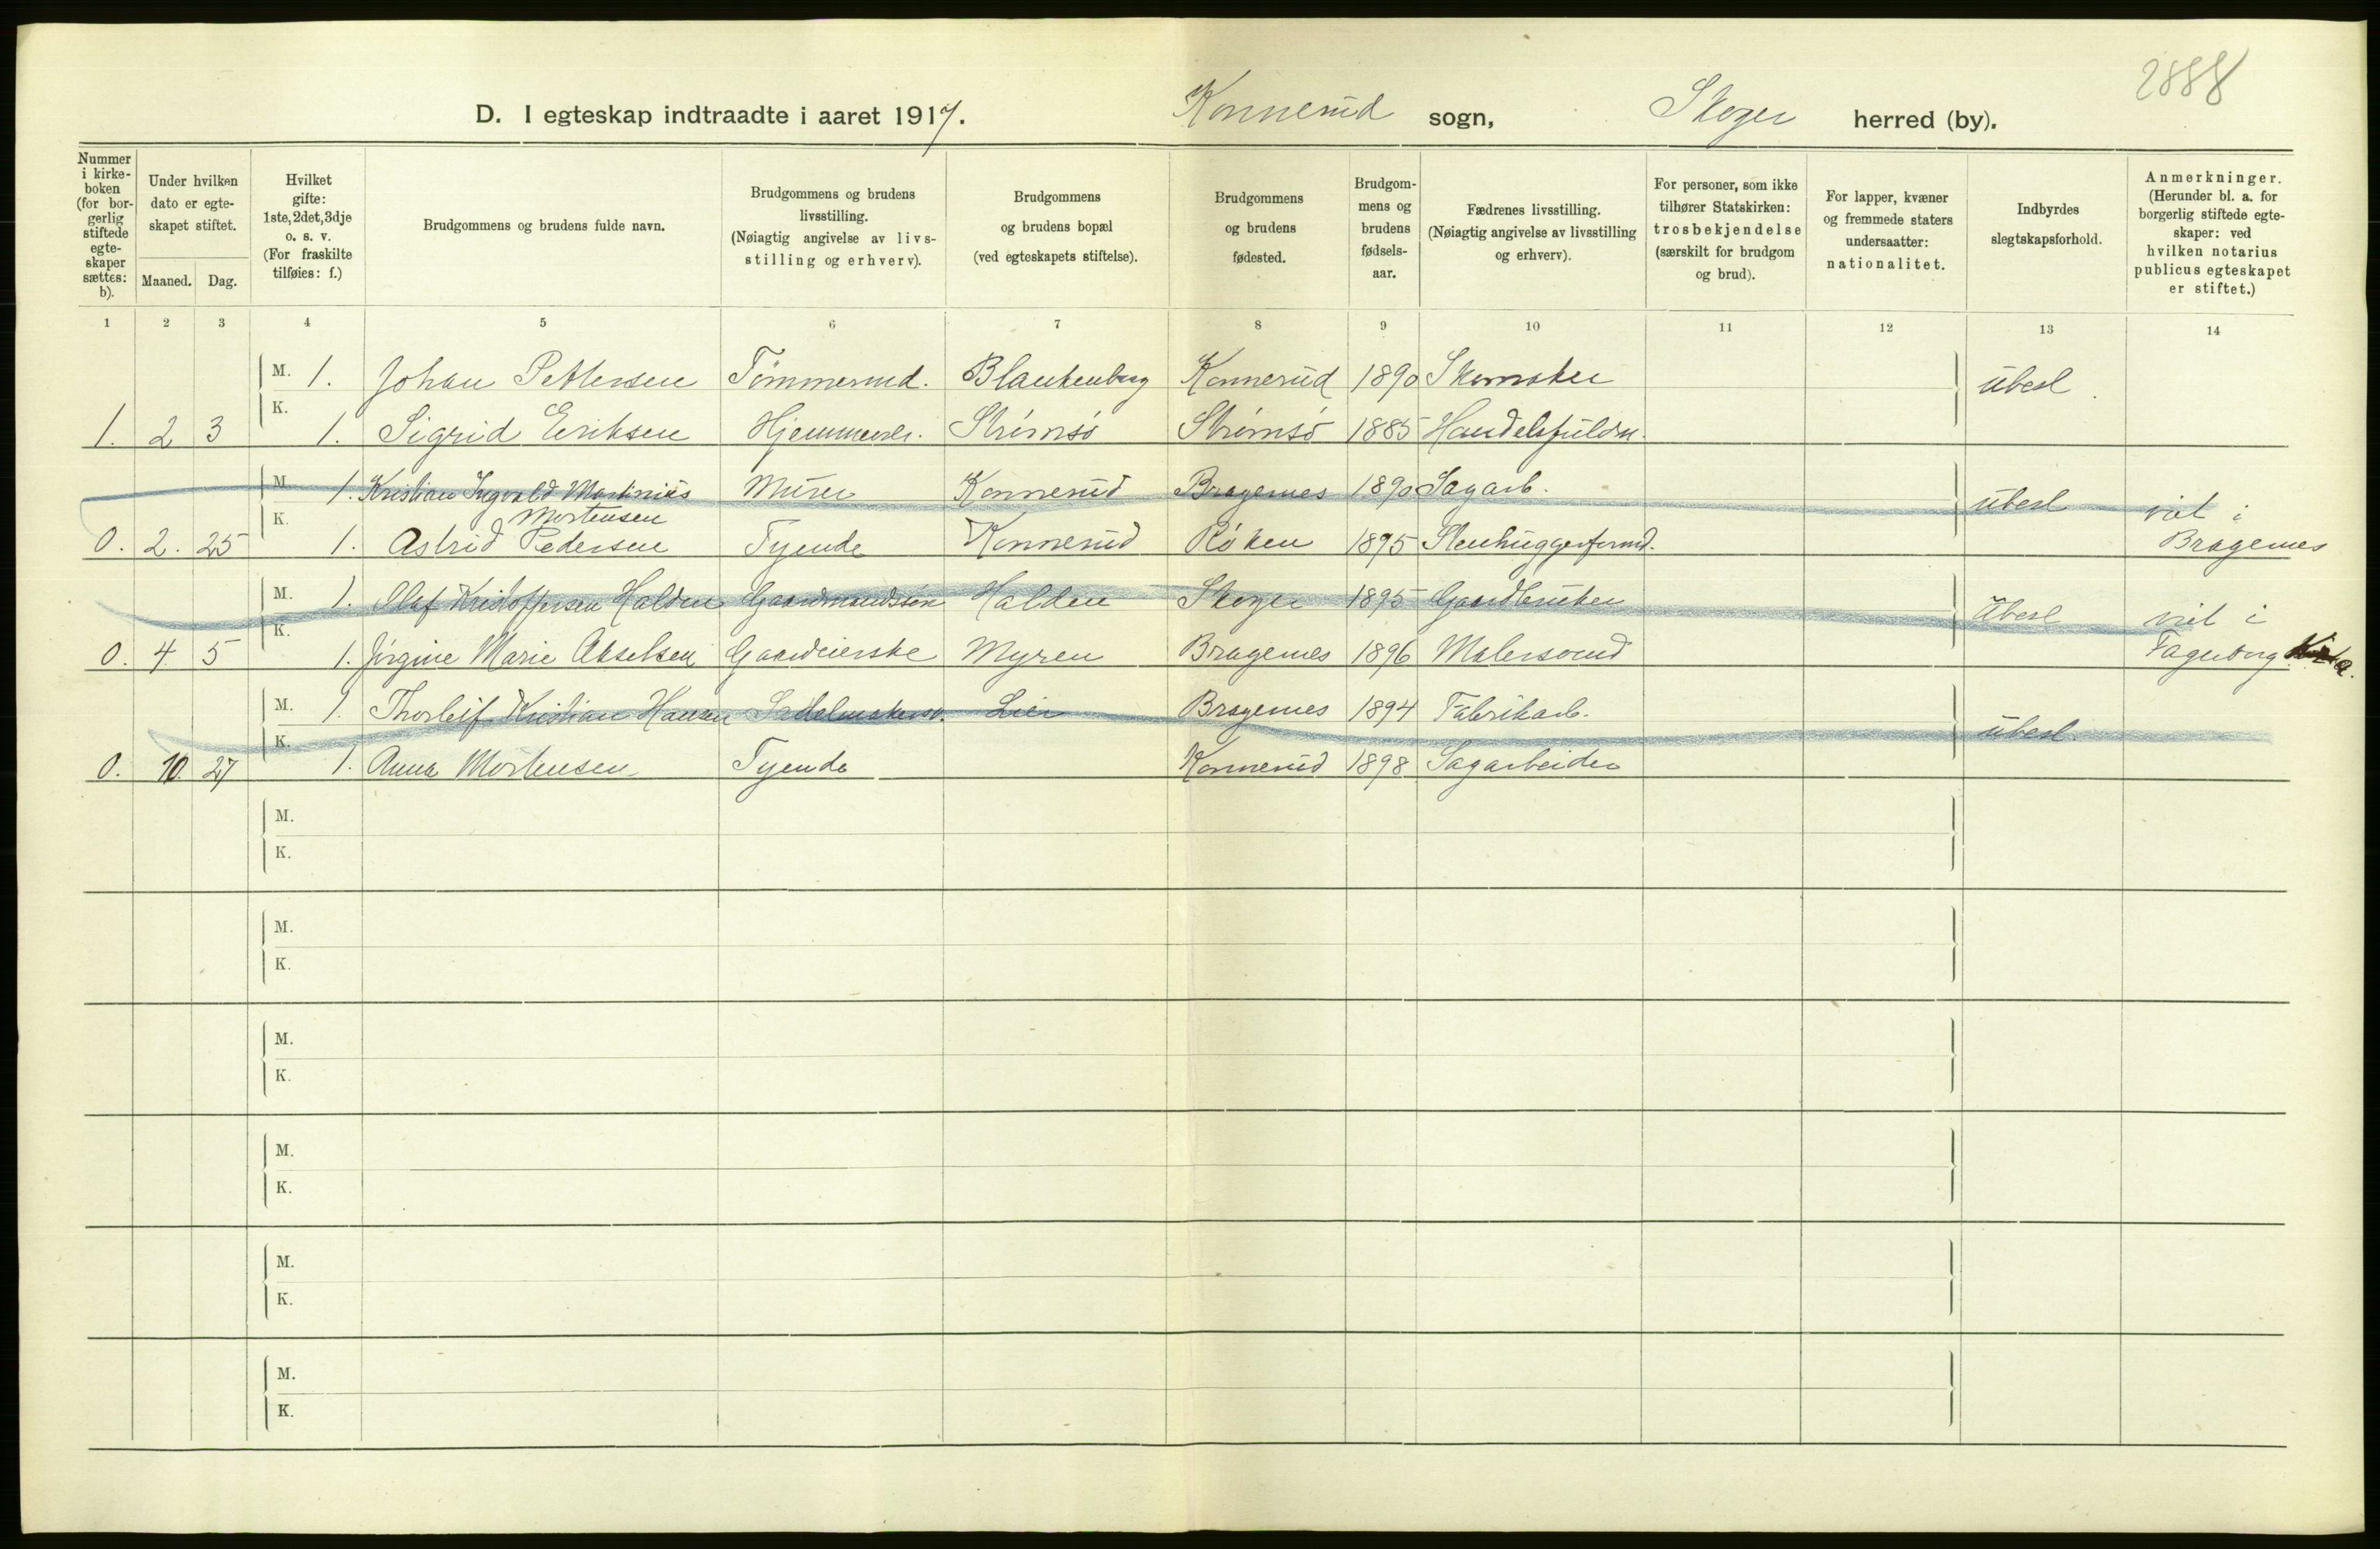 2888
D. I egteskap indtraadte i aaret 1917. Konnerud sogn, Skoger herred (by).
Nummer i kirkeboken (for borgerlig stiftede egteskaper sættes: b).
Under hvilken dato er egteskapet stiftet.
Maaned. Dag.
Hvilket gifte: 1ste, 2det, 3dje o. s. v. (For fraskilte tilføies: f.)
Brudgommens og brudens fulde navn.
Brudgommens og brudens livsstilling. (Nøiagtig angivelse av livsstilling og erhverv).
Brudgommens og brudens bopæl (ved egteskapets stiftelse).
Brudgommens og brudens fødested.
Brudgommens og brudens fødselsaar.
Fædrenes livsstilling. (Nøiagtig angivelse av livsstilling og erhverv).
For personer, som ikke tilhører Statskirken: trosbekjendelse (særskilt for brudgom og brud).
For lapper, kvæner og fremmede staters undersaatter: nationalitet.
Indbyrdes slegtskapsforhold.
Anmerkninger. (Herunder bl. a. for borgerlig stiftede egteskaper: ved hvilken notarius publicus egteskapet er stiftet.)
1 2 3 4 5 6 7 8 9 10 11 12 13 14
M. 1. Johan Pettersen Tømmermd. Blankenberg Konnerud 1890 Skomaker ubesl.
K.
1. 2 3 1. Sigrid Eriksen Strømsø Strømsø 1885
M. 1. Kristian Ingvald Martinius Murer Konnerud Bragernes 1890 Sagarb. ubesl viet i
K. Mortensen
0. 2. 25 1. Astrid Pedersen Tyende Konnerud Røken 1895 Stenhuggerformd. Bragernes
M. 1. Olaf Kristoffersen Halden Gaardmandssøn Halden Skoger 1895 Gaardbruker Ubesl viet i
K.
0. 4 5 1. Jørgine Marie Akselsen Gaardeierske Myren Bragernes 1896 Malersvend Fagerborg
M. 1. Thorleif Kristian Hansen Sadelmakersv. Lier Bragernes 1894 Fabrikarb. ubesl
K.
0. 10. 27 1. Anna Mortensen Tyende Konnerud 1898 Sagarbeider
M.
K.
M.
K.
M.
K.
M.
K.
M.
K.
M.
K.